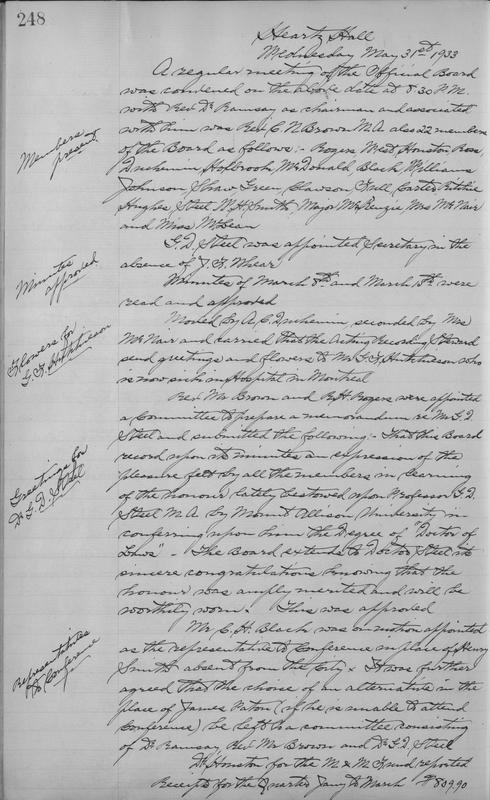 248
Heartz Hall
Wednesday May 31st 1933
A regular meeting of the Official Board
was convened on the above date at 8.30 P.M.
with Rev Dr Ramsay as chairman and associated
with him was Rev. C. N. Brown M.A. also 22 members
Members present
of the Board as follows:- Rogers, West, Houston, Ross,
Duchemin, Holbrook, McDonald, Black, Williams
Johnson, Shaw, Green, Clawson, Full, Carter, Ritchie
Hughes, Steel, M. H. Smith, Major McKenzie, Mrs McNair
and Miss McLean
G. D. Steel was appointed Secretary in the
absence of J. Whear
Minutes approved
Minutes of March 8th and March 15th were
read and approved
Moved by A. C. Duchemin, seconded by Mrs
Flowers for G. F. Hutcheson
McNair and carried that the Acting Recording Steward
send greetings and flowers to Mr G. F. Hutcheson who
is now sick in Hospital in Montreal
Rev. Mr Brown and R. H. Rogers were appointed
a Committee to prepare a memorandum re Mr G. D.
Steel and submitted the following:- That this Board
record upon its minutes an expression of the
Greetings for Dr G. D. Steel
pleasure felt by all the members in learning
of the honour lately bestowed upon Professor G. D.
Steel M.A. by Mount Allison University in
conferring upon him the Degree of "Doctor of
Laws" - The Board extends to Doctor Steel its
sincere congratulations knowing that the
honour was amply merited and will be
worthily worn. This was approved
Representatives to Conference
Mr. C. H. Black was on motion appointed
as the representative to Conference in place of Henry
Smith absent from the City & It was further
agreed that the choise of an alternative in the
place of James Paton (if he is unable to attend
Conference) be left to a committee consisting
of Dr Ramsay, Rev Mr Brown and Dr G. D. Steel
Dr Houston for the M & M Fund reported
Receipts for the Quarter Jany to March $809.90